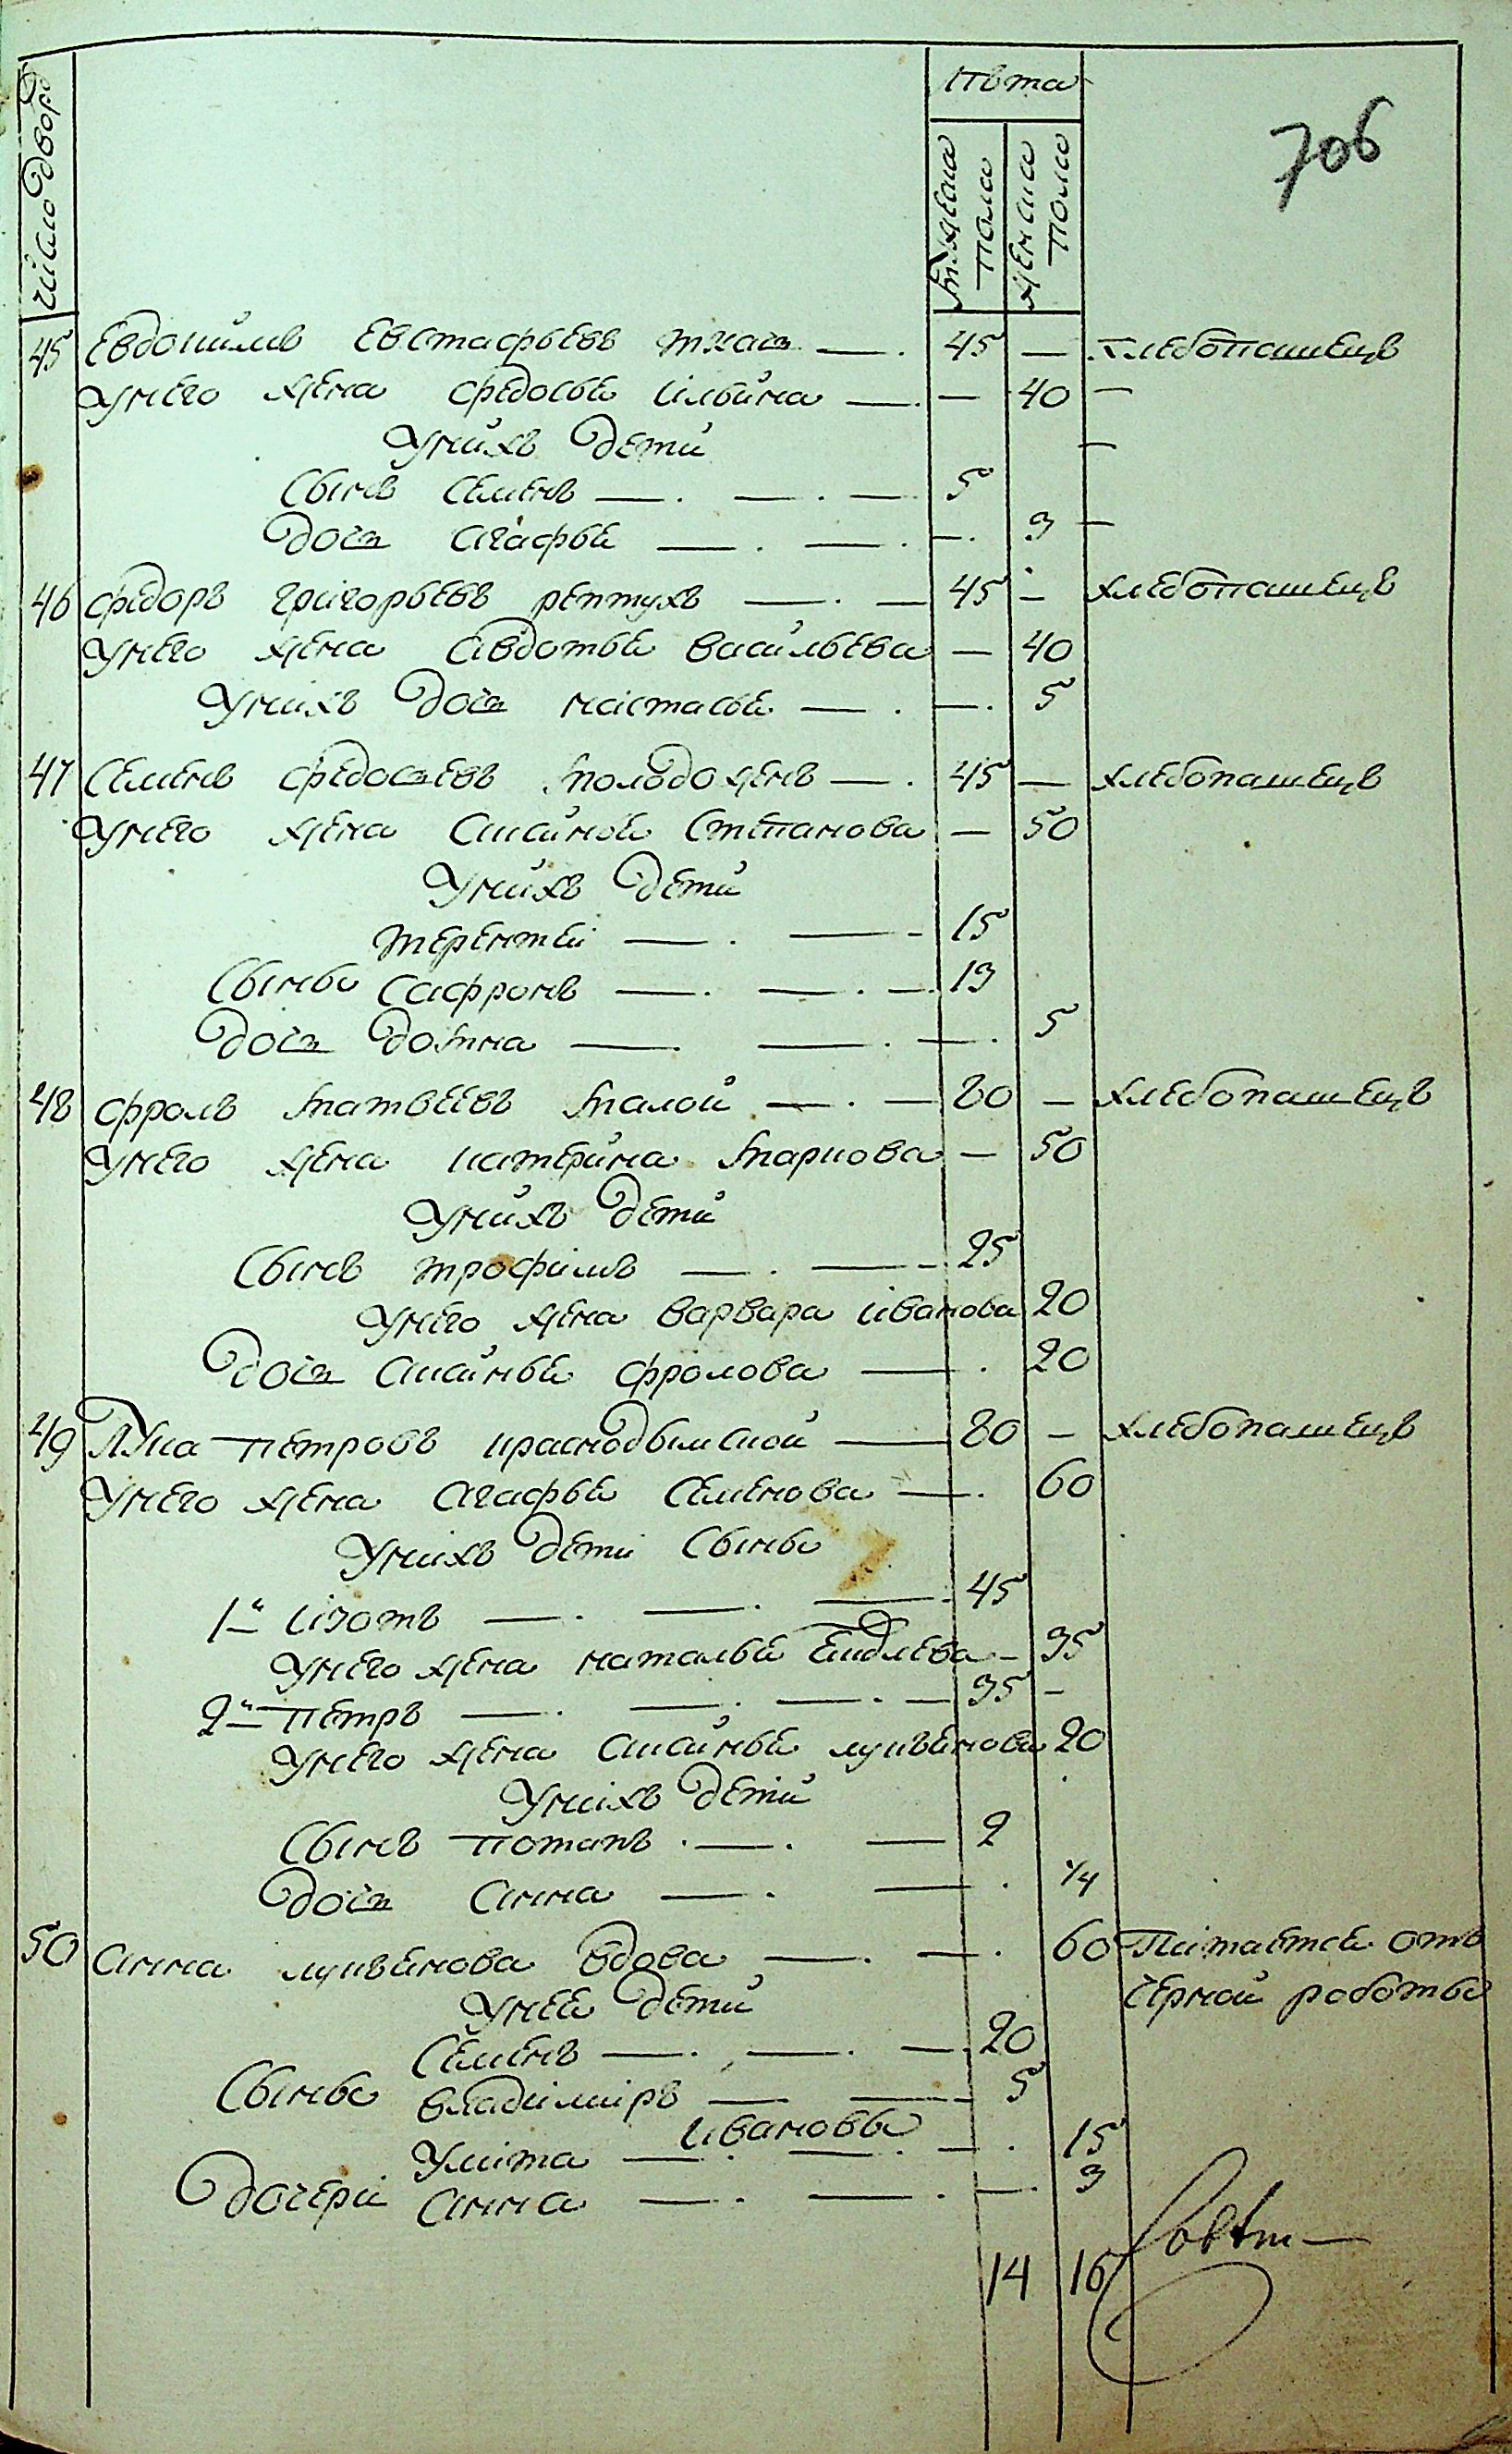 число двор
лѣта
мужеска пола
женска пола
706
45 Евдокимъ Евстафьевъ ткач — 45 — хлебопашецъ
унего жена Федосье Ильина — — 40 —
унихъ дети —
Сынъ Семенъ — 5
дочь Агафье — — 3 —
46 Федоръ Григорьевъ рептухъ — 45 — хлебопашецъ
унего жена Авдотье Васильева — 40
унихъ дочь Настасье — — 5
47 Семенъ Федосеевъ молодоженъ — 45 — хлебопашецъ
унего жена Аксинье Степанова — 50
унихъ дети
терентей — 15
Сыны Сафронъ — 13
дочь домна — — 5
48 Фролъ Матвеевъ Малой — 80 — хлебопашецъ
унего жена Катерина Маркова — 50
унихъ дети
Сынъ трофимъ — 25
унего жена варвара Иванова 20
дочь Аксинье Фролова — 20
49 Лука Петровъ — 80 — хлебопашецъ
унего жена Агафье Семенова — 60
унихъ дети Сыны
1й Изотъ — 45
унего жена Наталье — 35
2й Петръ — 35 —
унего жена Аксинье лукьянова 20
унихъ дети
Сынъ Потапъ — 2
дочь Анна — 1/4
50 Анна лукьянова вдова — — 60 Питается отъ
черной работы
унее дети
Семенъ — 20
Сыны владимиръ — 5
Ивановы
Улита — — 15
дочери Анна — — 3
14 16